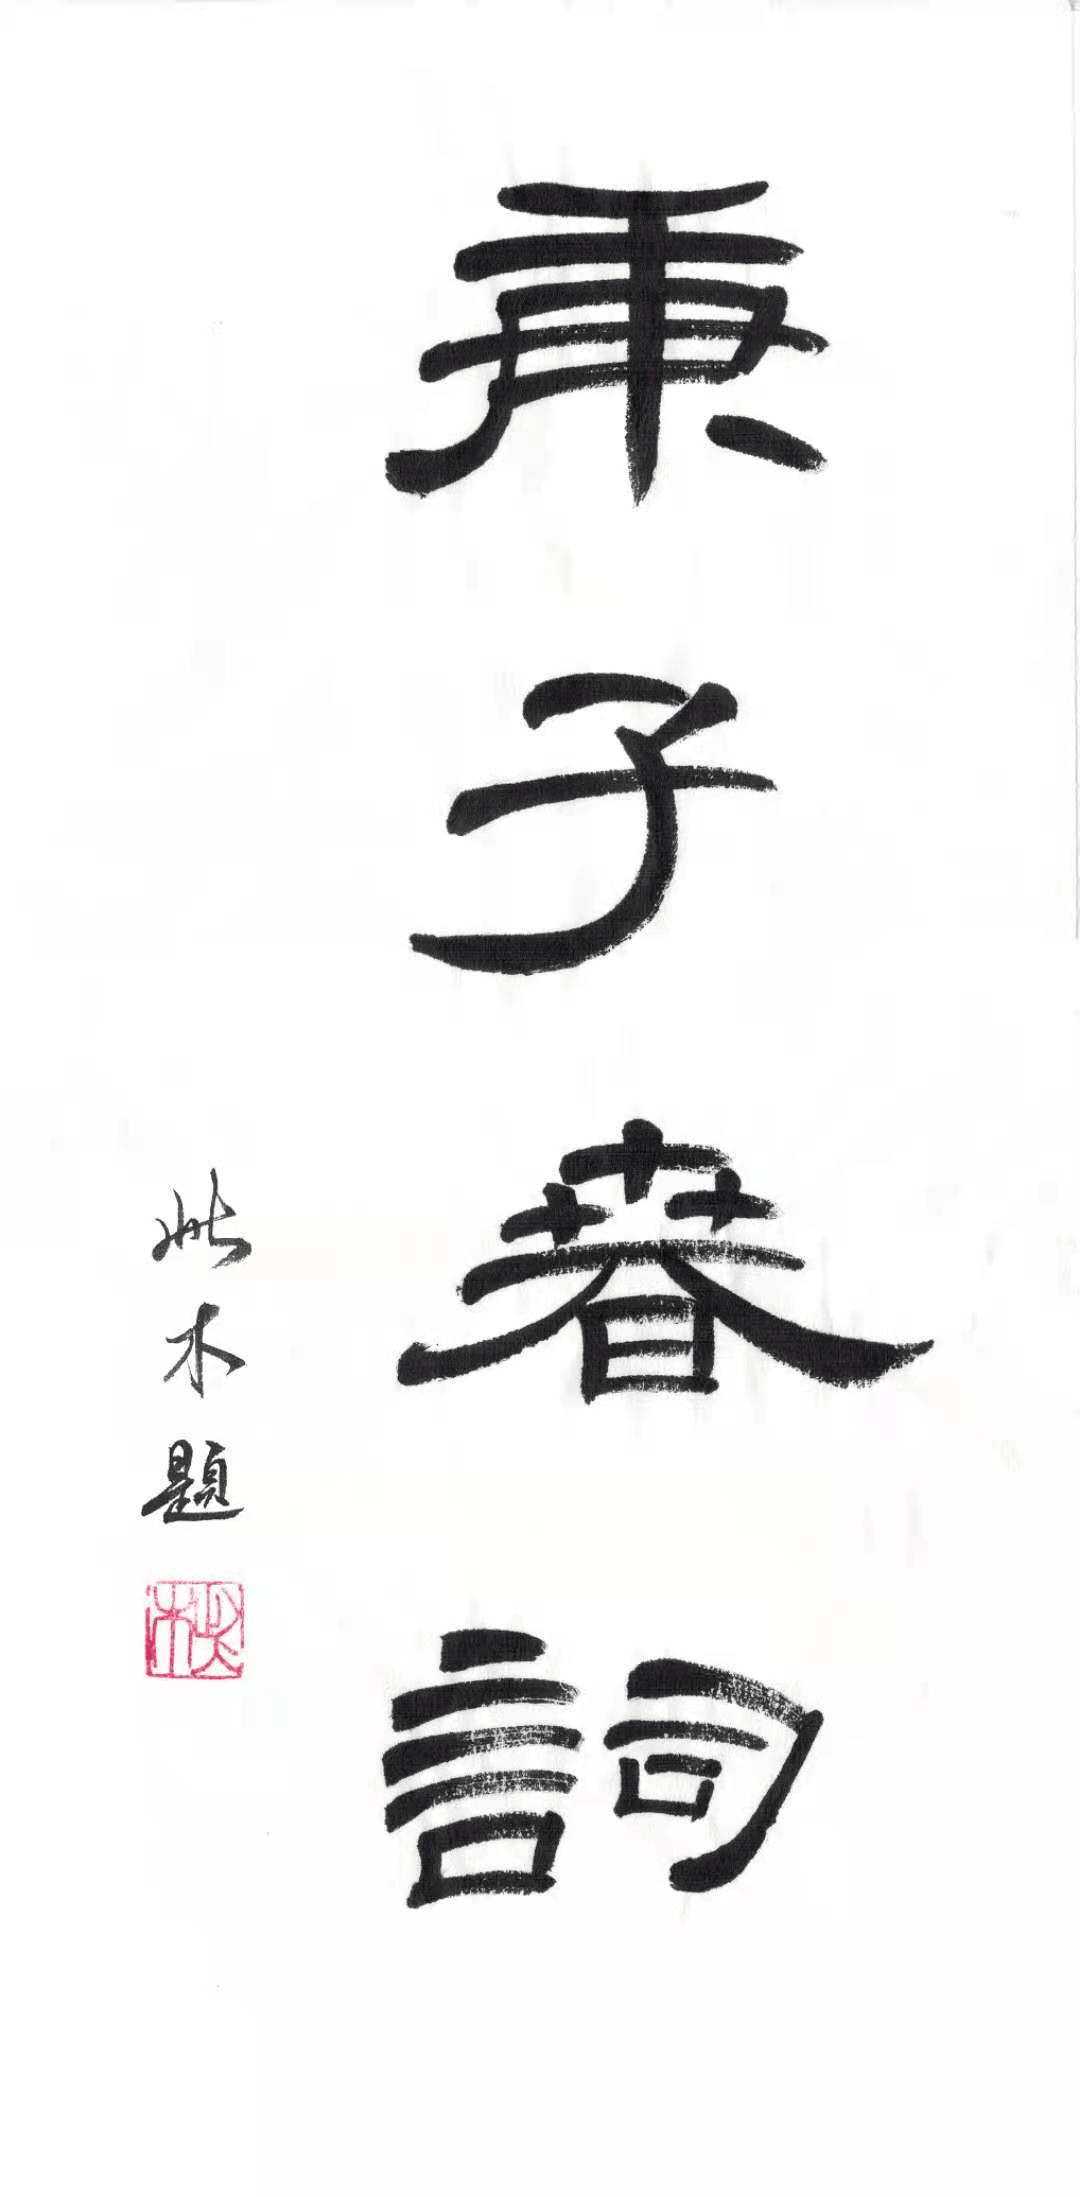 庚子春詞
此木題